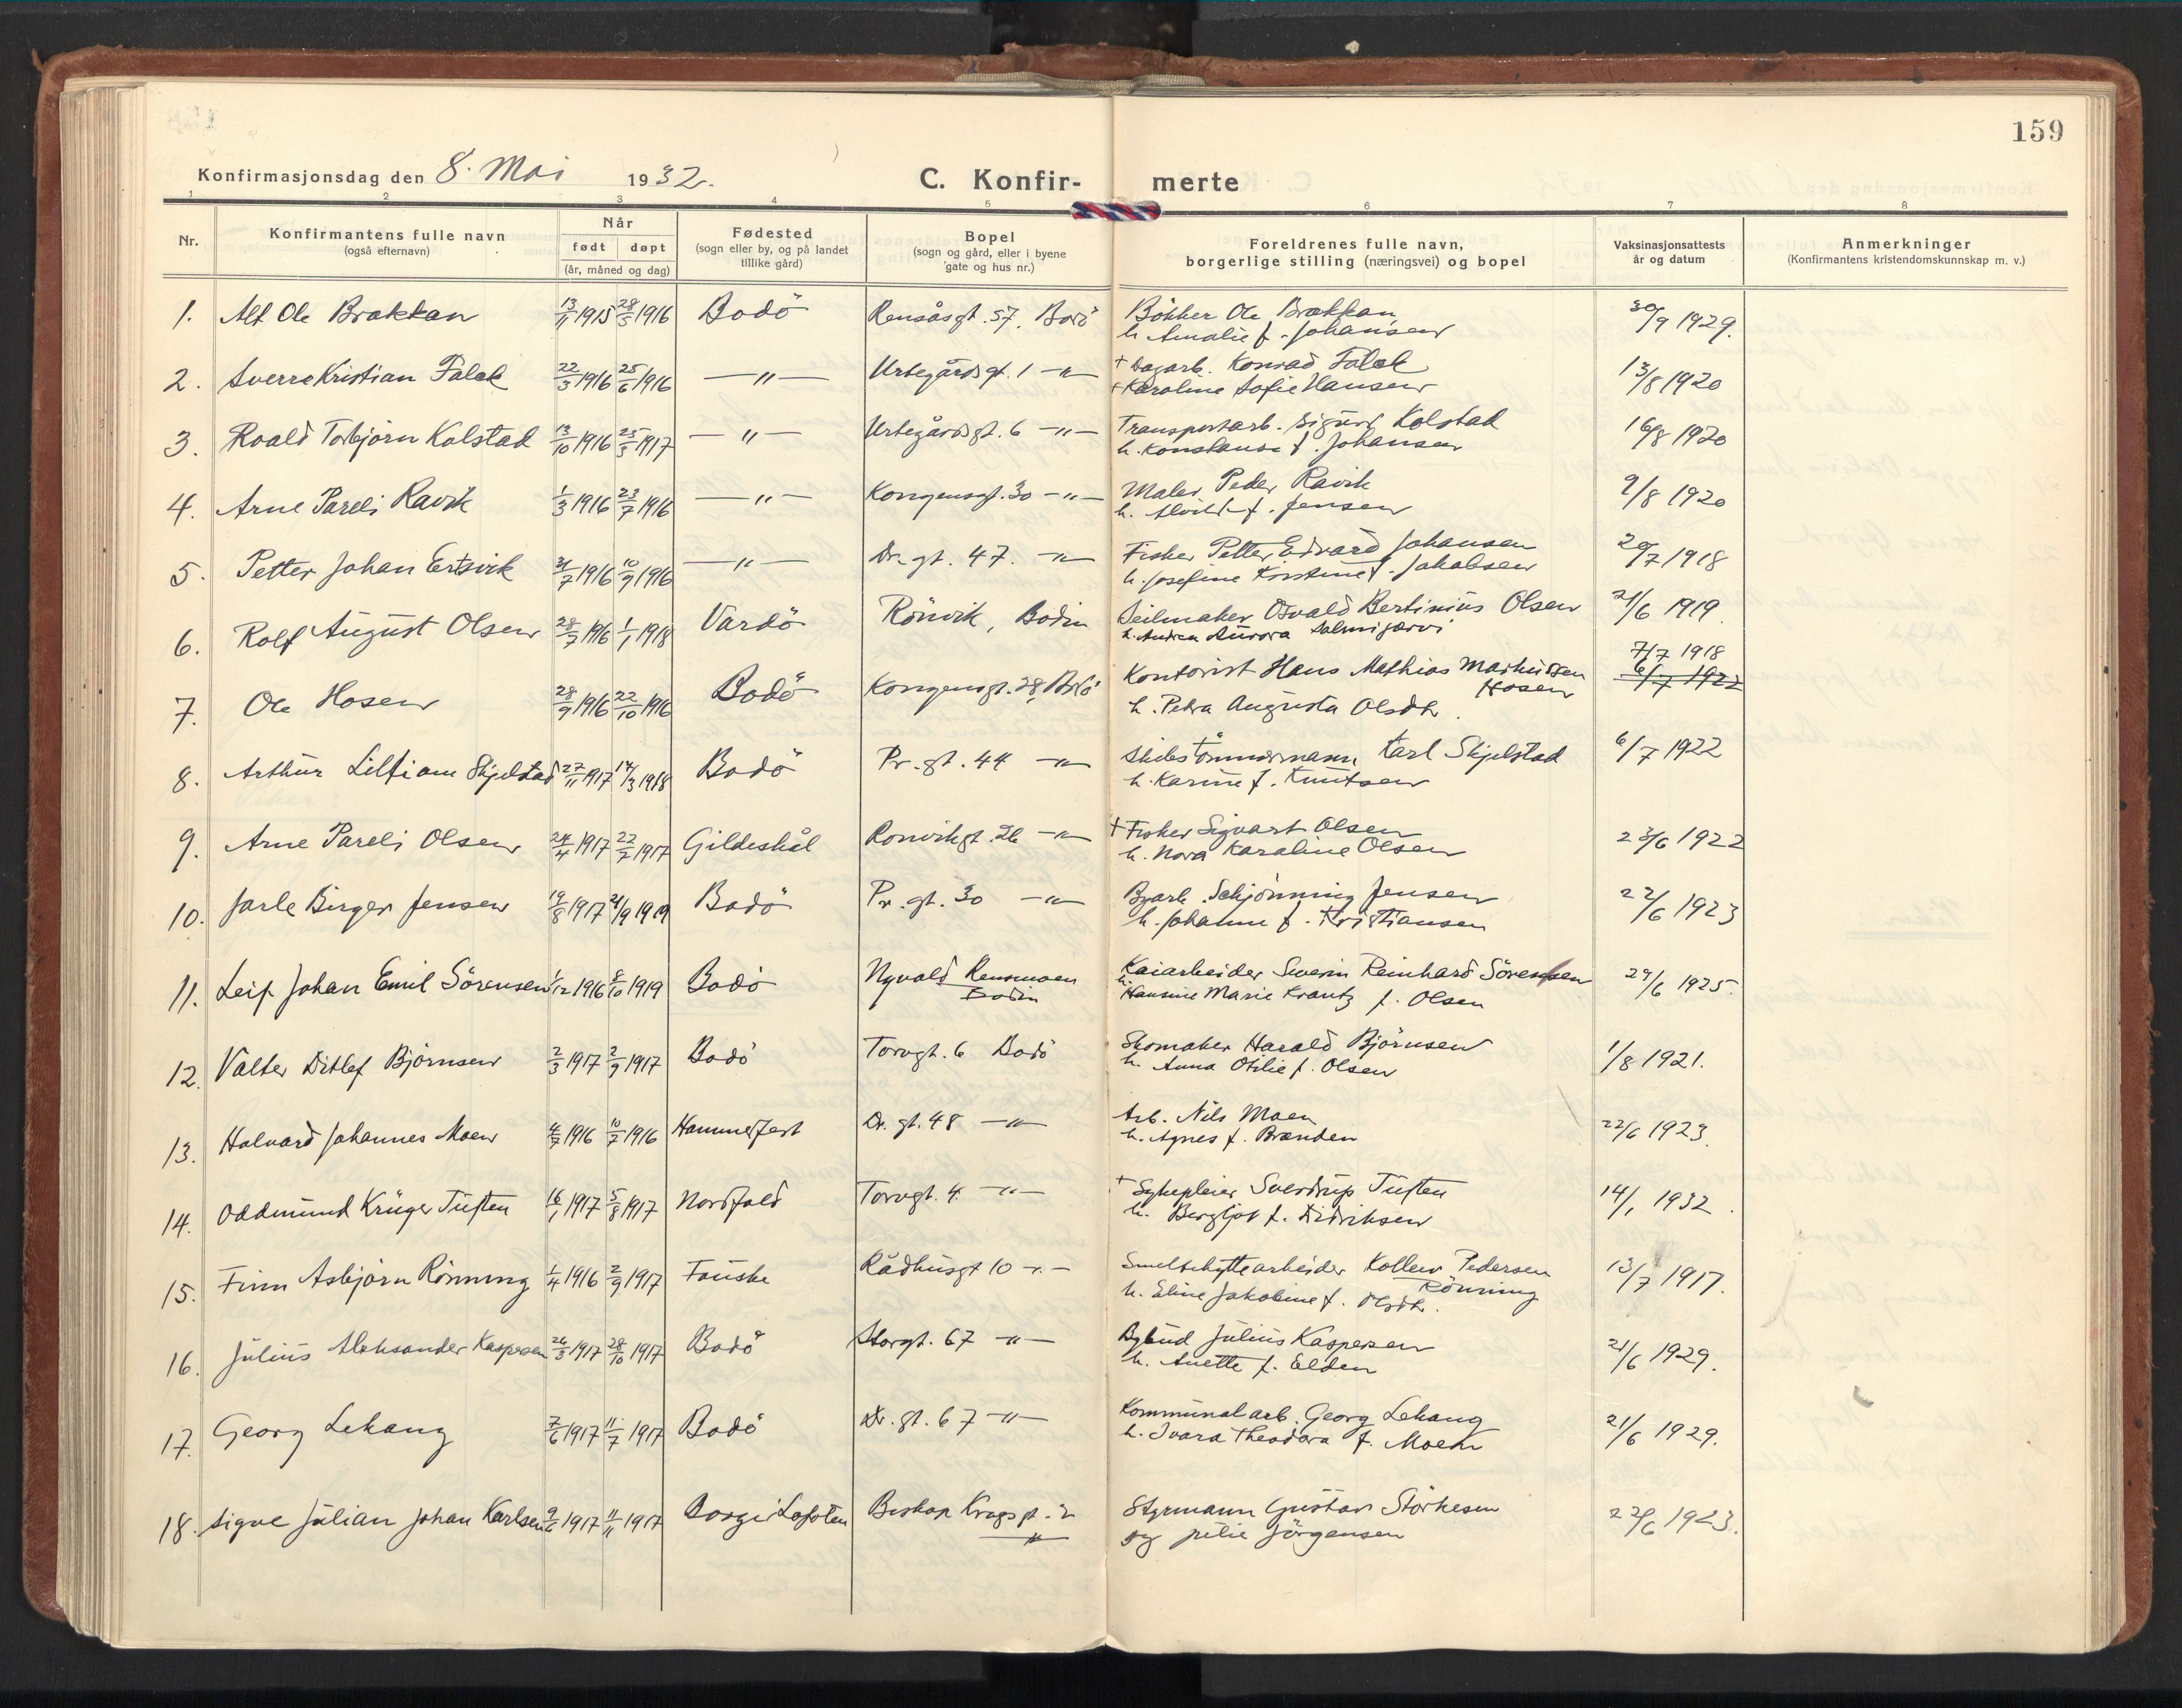 159
Konfirmasjonsdag den 8. Mai 1932.
C. Konfir- merte
1 2 3 4 5 6 7 8
Nr.
Konfirmantens fulle navn
(også efternavn)
Når
født døpt
(år, måned og dag)
Fødested
(sogn eller by, og på landet
tillike gård)
Bopel
(sogn og gård, eller i byene
gate og hus nr.)
Foreldrenes fulle navn,
borgerlige stilling (næringsvei) og bopel
Vaksinasjonsattests
år og datum
Anmerkninger
(Konfirmantens kristendomskunnskap m. v.)
1. Alf Ole Brækkan 13/11 1915 28/5 1916 Bodö Rensåsgt. 57, Bodö Bökker Ole Brækkan 30/9 1929.
h. Amalie f. Johansen
2. Sverre Kristian Falck 22/3 1916 25/6 1916 —"— Urtegårdsgt. 1 —"— + Dagarb. Konrad Falck 13/8 1920
+ Karoline Sofie Hansen
3. Roald Torbjörn Kolstad 13/10 1916 25/3 1917 —"— Urtegårdsgt. 6 —"— Transportarb. Sigurd Kolstad 16/8 1920
h. Konstanse f. Johansen
4. Arne Pareli Ravik 1/3 1916 23/7 1916 —"— Kongensgt. 30 —"— Maler Peder Ravik 9/8 1920
h. Alvild f. Jensen
5. Petter Johan Ertsvik 31/7 1916 10/9 1916 —"— Dr. gt. 47. —"— Fisker Petter Edvard Johansen 20/7 1918
h. Josefine Kirstine f. Jakobsen
6. Rolf August Olsen 28/7 1916 1/1 1918 Vardö Rönvik, Bodin Seilmaker Osvald Bertinius Olsen 21/6 1919.
h. Andrea Aurora Salmijærvi
7/7 1918
7. Ole Hosen 28/9 1916 22/10 1916 Bodö Kongensgt. 28, Bodö Kontorist Hans Mathias Markussen 6/7 1922
Hosen
h. Petra Augusta Olsdtr.
8. Arthur Lilliam Skjelstad 27/11 1917 17/3 1918 Bodö Pr. gt. 44 —"— Skibstömmermann Karl Skjelstad 6/7 1922
h. Karine f. Knutsen
9. Arne Pareli Olsen 24/4 1917 22/7 1917 Gildeskål Rönvikgt. 26 —"— + Fisker Sigvart Olsen 23/6 1922
h. Nora Karoline Olsen
10. Jarle Birger Jensen 19/8 1917 21/9 1919 Bodö Pr. gt. 30 —"— Byarb. Schjönning Jensen 22/6 1923
h. Johanne f. Kristiansen
11. Leif Johan Emil Sörensen 1/12 1916 8/10 1919 Bodö Nyvold Rensmoen Kaiarbeider Severin Reinhard Sörensen 29/6 1925.
Bodin
h. Hansine Marie Krantz f. Olsen
12. Valter Ditlef Björnsen 2/3 1917 2/9 1917 Bodö Torvgt. 6 Bodö Skomaker Harald Björnsen 1/8 1921.
h. Anna Otilie f. Olsen
13. Halvard Johannes Moen 4/7 1916 10/7 1916 Hammerfest Dr. gt. 48 —"— Arb. Nils Moen 22/6 1923.
h. Agnes f. Brenden
14. Oddmund Krüger Tuften 16/1 1917 5/8 1917 Nordfold Torvgt. 4. —"— + Sykepleier Sverdrup Tuften 14/1 1932.
h. Bergljot f. Didriksen
15. Finn Asbjörn Rönning 1/4 1916 2/9 1917 Fauske Rådhusgt 10 —"— Smeltehyttearbeider Kollew Pedersen 13/7 1917.
Rönning
h. Eline Jakobine f. Olsdtr.
16. Julius Aleksander Kaspersen 24/3 1917 28/10 1917 Bodö Storgt. 67 —"— Bybud Julius Kaspersen 21/6 1929.
h. Anette f. Elden
17. Georg Lekang 7/6 1917 11/7 1917 Bodö Dr. gt. 67 —"— Kommunalarb. Georg Lekang 21/6 1929.
h. Ivara Theodora f. Moen
18. Signe Julian Johan Karlsen 9/6 1917 11/11 1917 Borge i Lofoten Biskop Krogs gt. 2 Styrmann Gustav Störkesen 22/6 1923.
—"—
og Julie Jörgensen